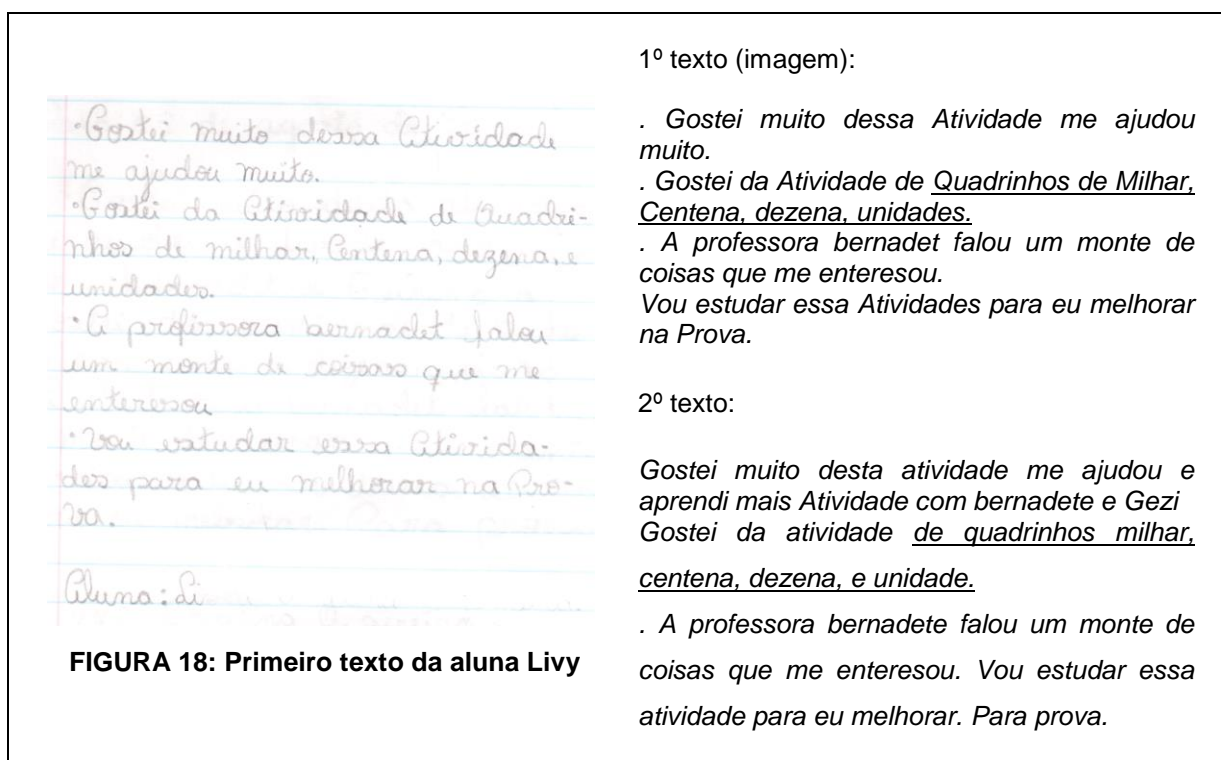 ·Gostei muito dessa Atividade
me ajudou muito.
·Gostei da Atividade de Quadri-
nhos de milhar, Centena, dezena, e
unidades.
·A professora bernadet falou
um monte de coisas que me
enteresou
·Vou estudar essa Ativida-
des para eu melhorar na Pro-
va.
Aluna: Li
FIGURA 18: Primeiro texto da aluna Livy
1º texto (imagem):
. Gostei muito dessa Atividade me ajudou
muito.
. Gostei da Atividade de Quadrinhos de Milhar,
Centena, dezena, unidades.
. A professora bernadet falou um monte de
coisas que me enteresou.
Vou estudar essa Atividades para eu melhorar
na Prova.
2º texto:
Gostei muito desta atividade me ajudou e
aprendi mais Atividade com bernadete e Gezi
Gostei da atividade de quadrinhos milhar,
centena, dezena, e unidade.
. A professora bernadete falou um monte de
coisas que me enteresou. Vou estudar essa
atividade para eu melhorar. Para prova.